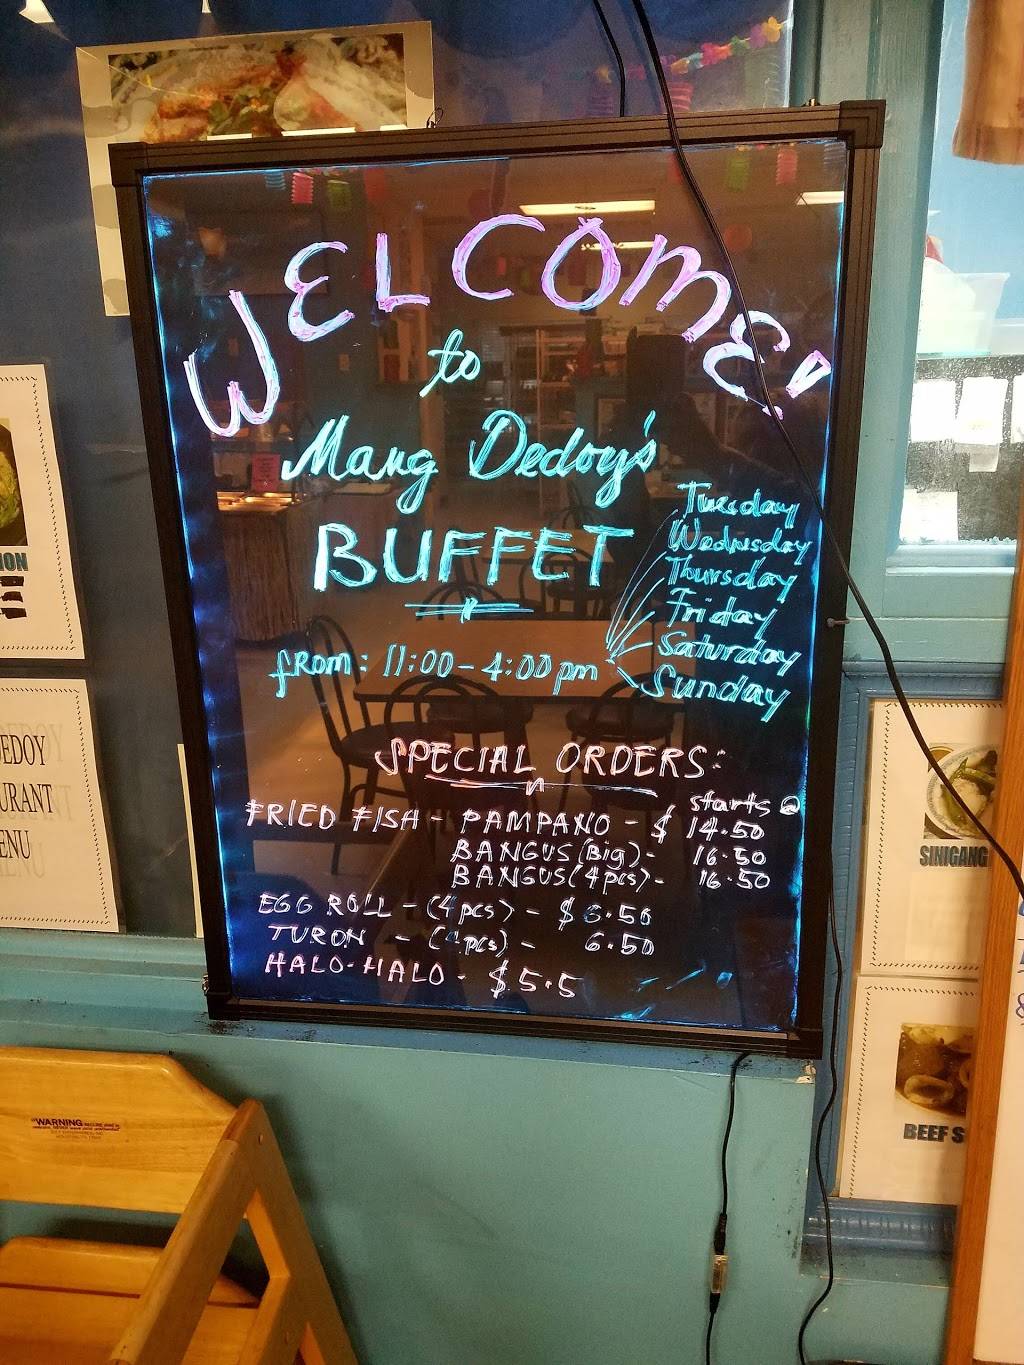 WELCOME!
to
Mang Dedoy's
BUFFET
Tuesday
Wednesday
Thursday
Friday
Saturday
Sunday
from: 11:00 - 4:00 pm
SPECIAL ORDERS:
starts @
FRIED FISH - PAMPANO - $ 14.50
BANGUS (Big) - 16.50
BANGUS (4pcs) - 16.50
EGG ROLL - (4pcs) - $ 6.50
TURON - ( pcs) - 6.50
HALO-HALO - $5.5
ION
EDOY
URANT
ENU
SINIGANG
BEEF S
WARNING